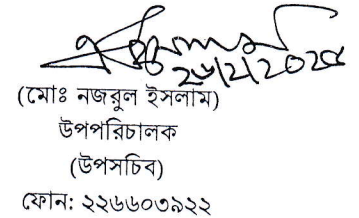 ২৬/২/২০২৫
(মোঃ নজরুল ইসলাম)
উপপরিচালক
(উপসচিব)
ফোন: ২২৬৬০৩৯২২